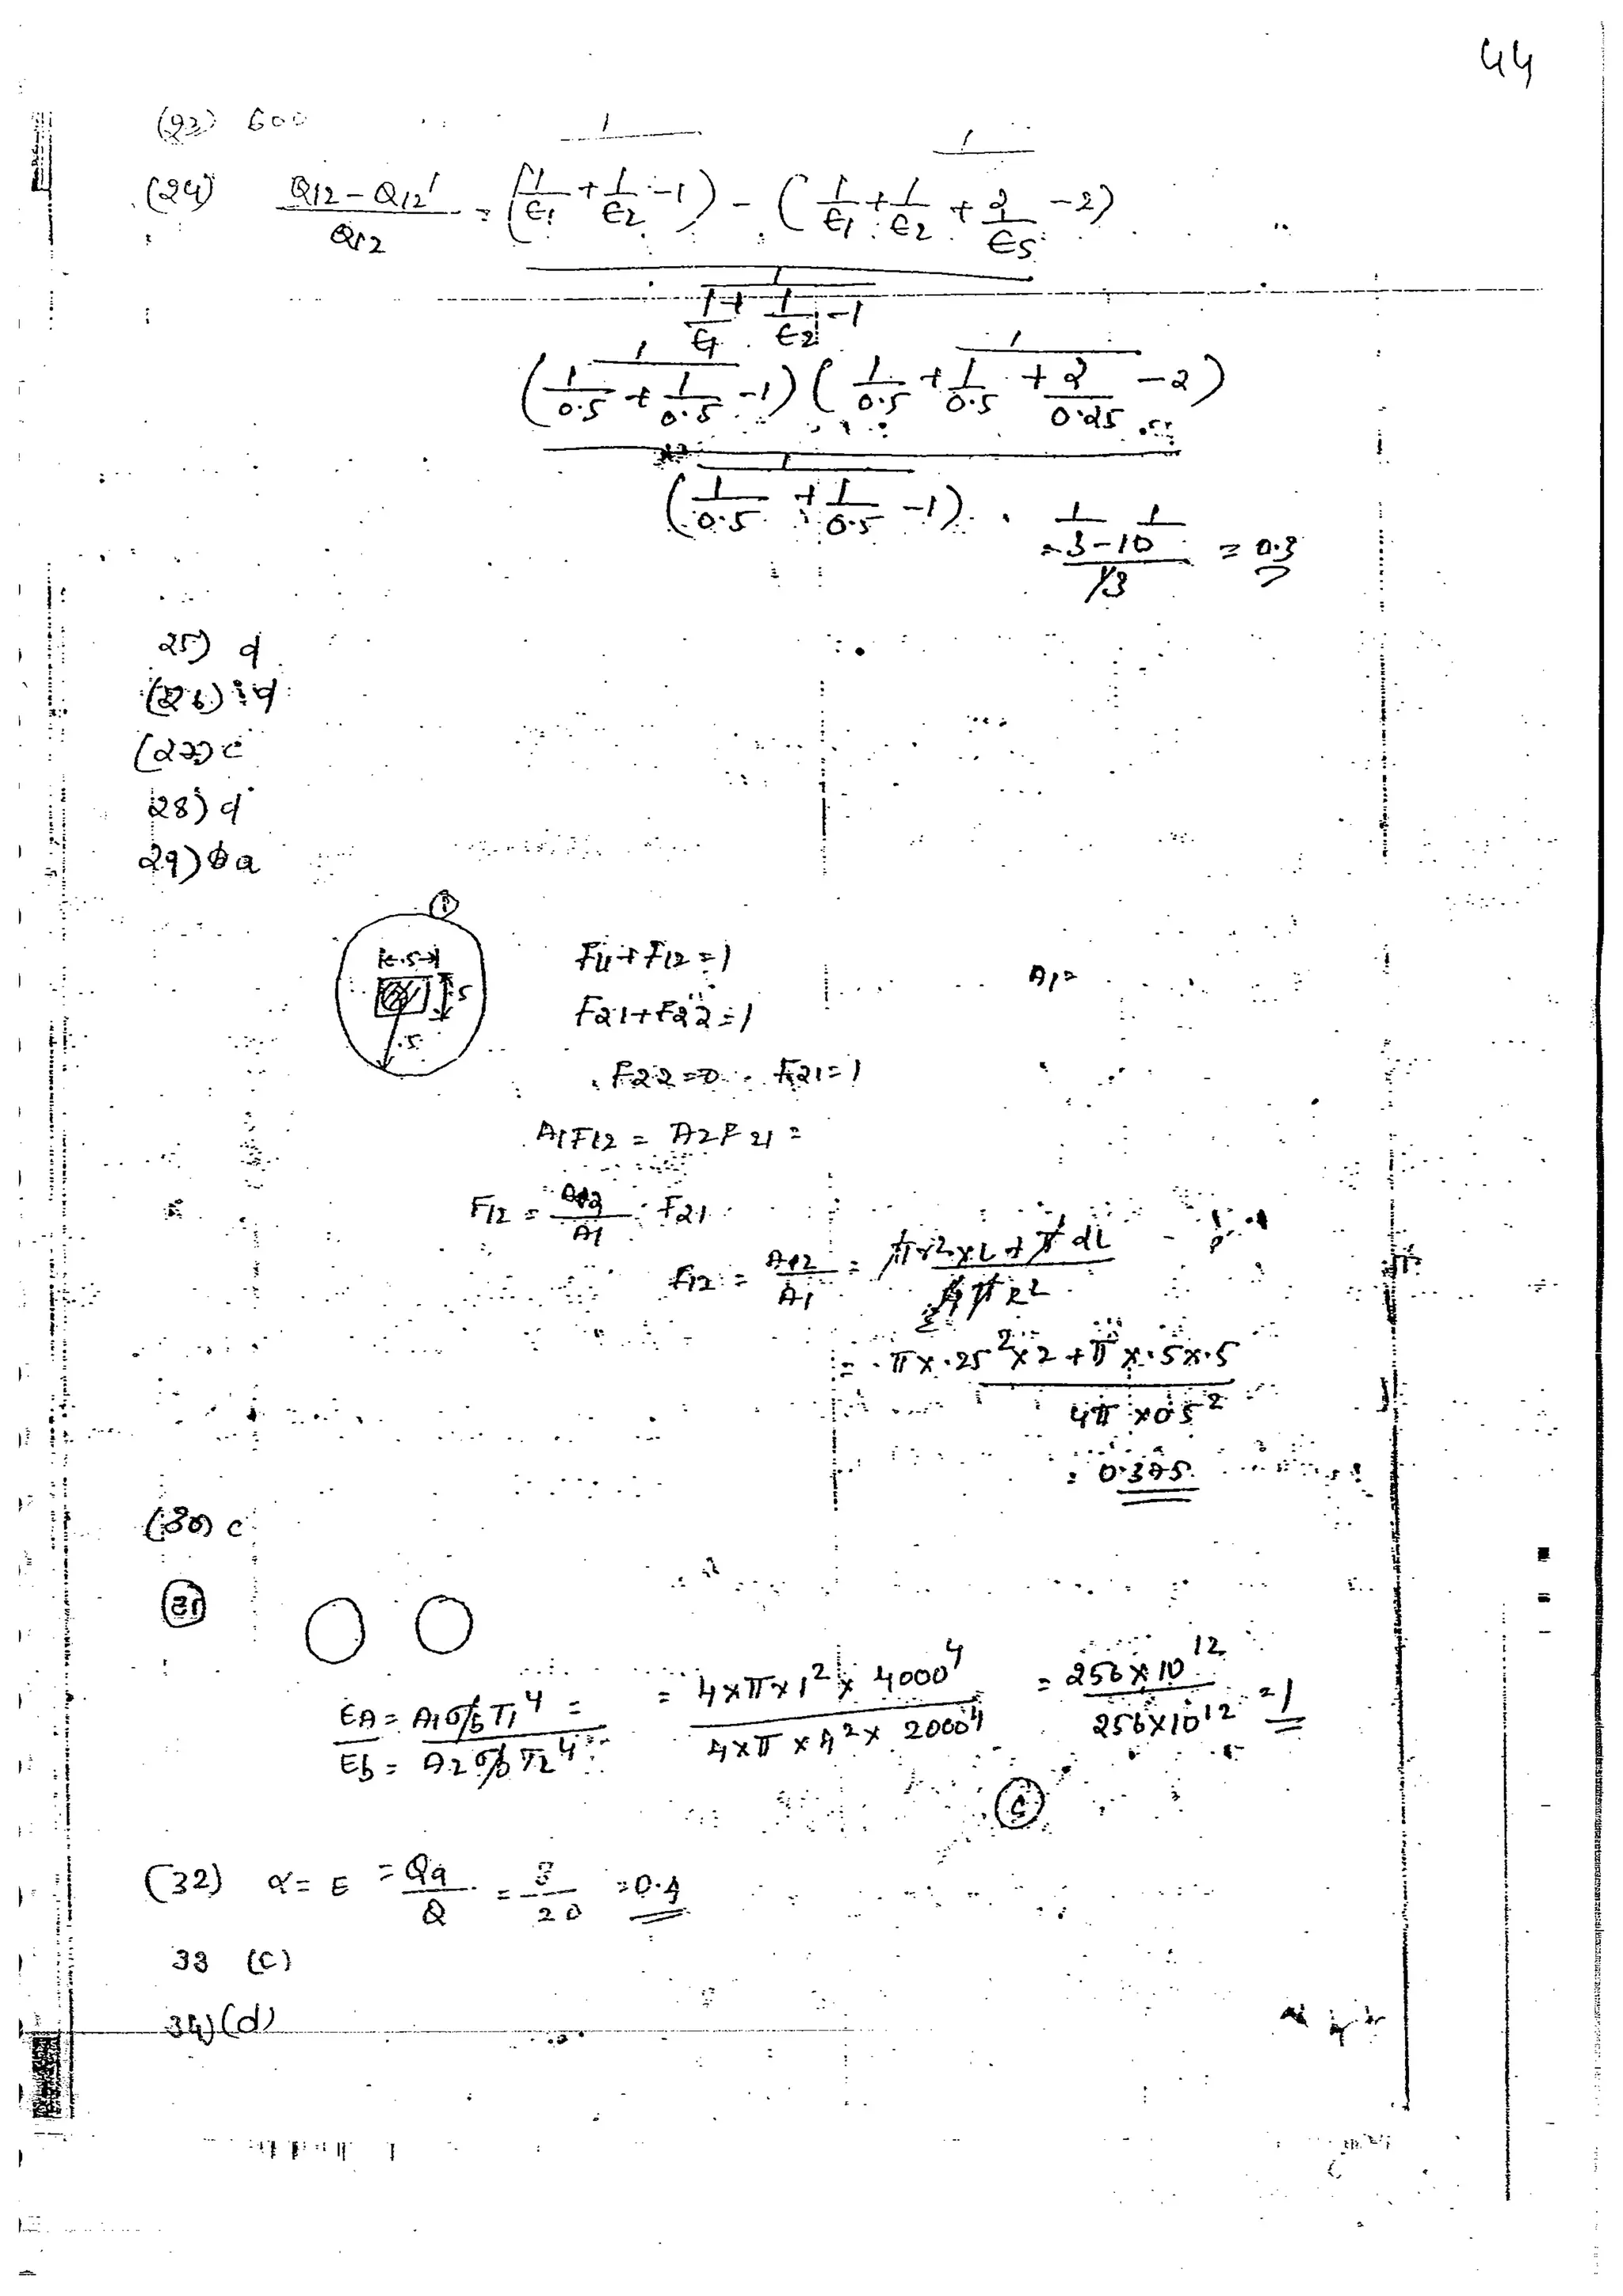 44
(23) 600
(24) Q12 - Q12' / Q12 = 1/(1/ϵ1 + 1/ϵ2 - 1) - 1/(1/ϵ1 + 1/ϵ2 + 2/ϵs - 2)
1/(1/ϵ1 + 1/ϵ2 - 1)
1/(1/0.5 + 1/0.5 - 1) 1/(1/0.5 + 1/0.5 + 2/0.25 - 2)
1/(1/0.5 + 1/0.5 - 1)
= 1/3 - 1/10 / 1/3 = 0.3
25) d
(26) d
(27) c
28) d
29) a
1
.5
.5
.5
F11 + F12 = 1
A1 =
F21 + F22 = 1
F22 = 0 F21 = 1
A1F12 = A2F21 =
F12 = A2/A1 F21
F12 = A2/A1 = πr²×2 + πdL / 4πR²
= π×.25²×2 + π×.5×.5 / 4π×0.5²
= 0.375
(30) c
31
EA = A1σbT1⁴ = / Eb = A2σbT2⁴ = 4×π×1²×4000⁴ / 4×π×4²×2000⁴ = 256×10¹² / 256×10¹² = 1
C
(32) α = E = Qa/Q = 8/20 = 0.4
33 (c)
34) (d)